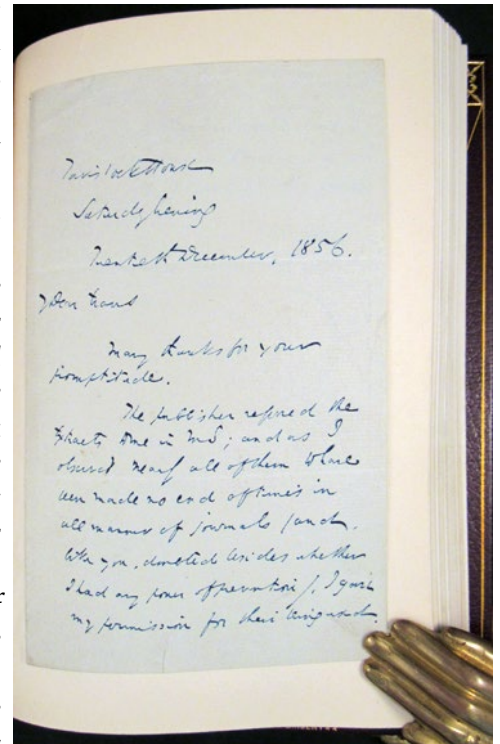 Tavistock House
Saturday Evening
Twentieth December, 1856.
My Dear Evans
Many thanks for your
promptitude.
The publisher referred the
extracts to me in MS; and as I
observed nearly all of them to have
been made no end of times in
all manner of journals (and,
like you, doubted besides whether
I had any power of prevention), I gave
my permission for their being used.